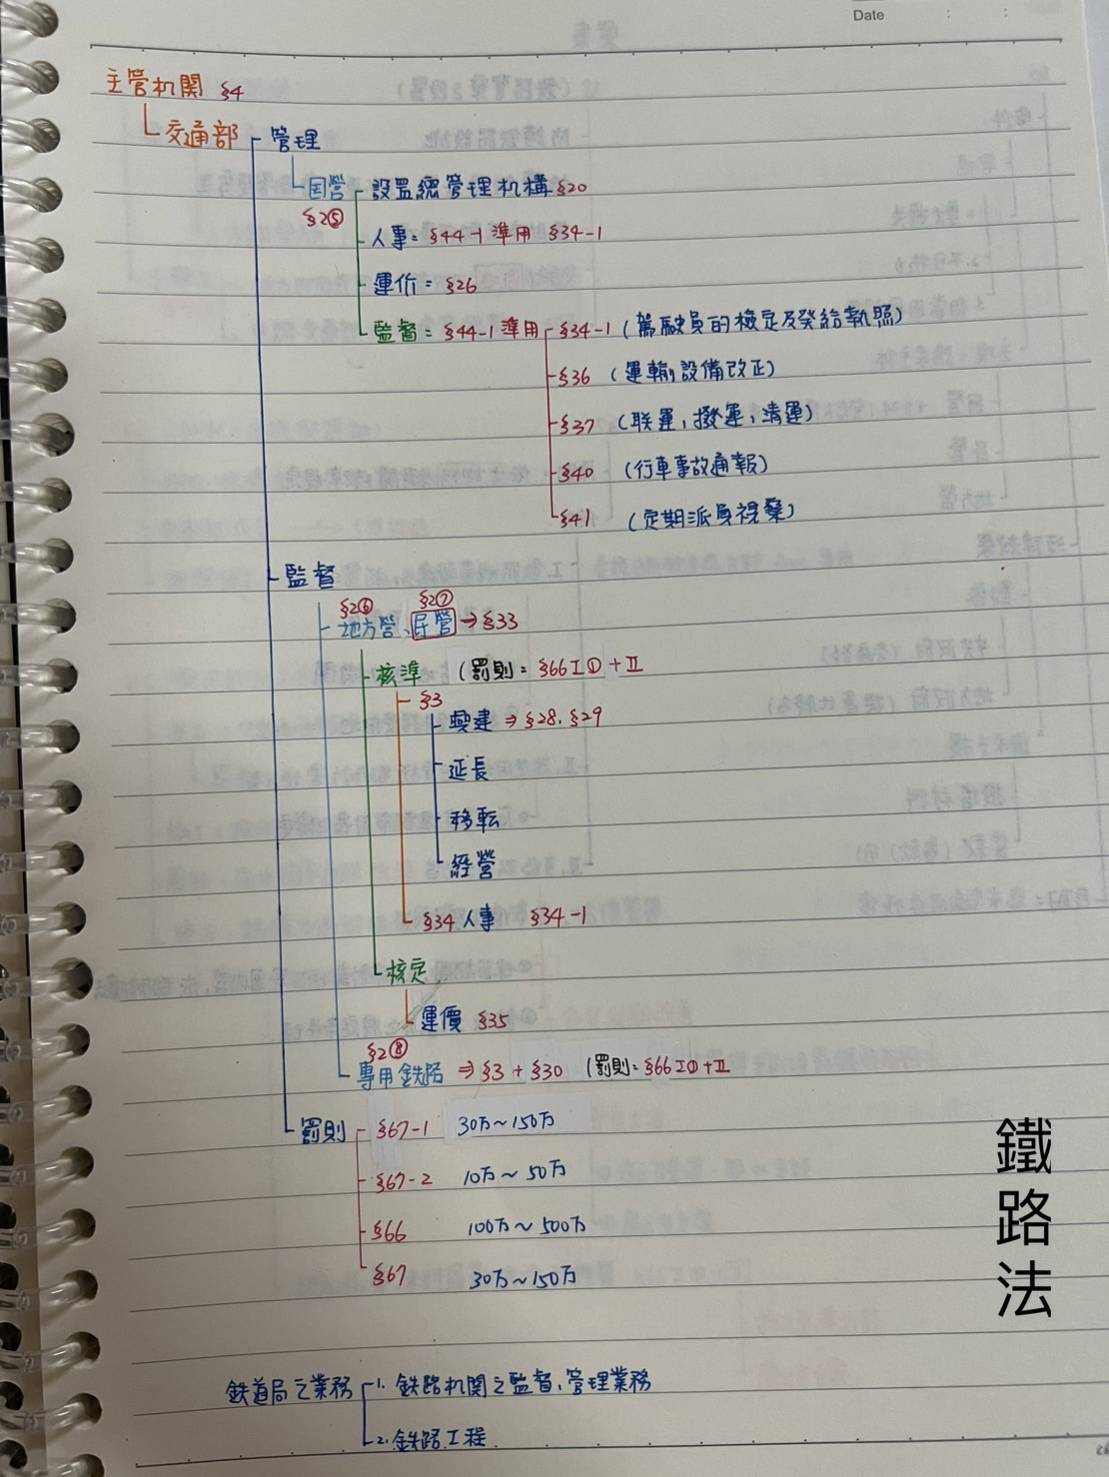 Date : :
主管机関 §4
交通部 管理
国営 設置總管理机構 §20
§2⑤
人事: §44-1 準用 §34-1
運价: §26
監督: §44-1 準用 §34-1 (駕駛員的檢定及発給執照)
§36 (運輸設備改正)
§37 (联運,撥運,清運)
§40 (行車事故通報)
§41 (定期派員視察)
監督
§2⑥ §2⑦
地方営、民營 → §33
核準 (罰則: §66 I ① + II
§3
興建 ⇒ §28. §29
延長
移転
經營
§34 人事 §34-1
核定
運價 §35
§2⑧
專用鉄路 ⇒ §3 + §30 (罰則: §66 I ① + II
罰則 §67-1 30万~150万
§67-2 10万~50万
§66 100万~500万
§67 30万~150万
鐵路法
鉄道局之業務 1. 鉄路机関之監督、管理業務
2. 鉄路工程